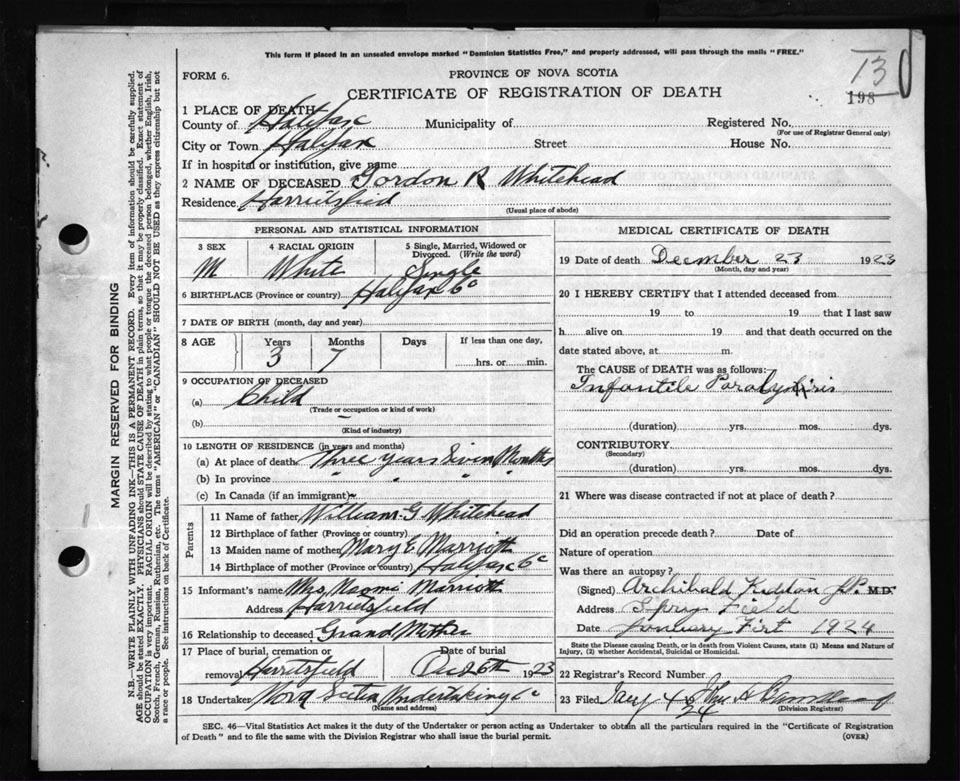 This form if placed in an unsealed envelope marked "Dominion Statistics Free," and properly addressed, will pass through the mails "FREE."
13
198
FORM 6.
PROVINCE OF NOVA SCOTIA
CERTIFICATE OF REGISTRATION OF DEATH
1 PLACE OF DEATH
County of Halifax Municipality of Registered No.
(For use of Registrar General only)
City or Town Halifax Street House No.
If in hospital or institution, give name
2 NAME OF DECEASED Gordon R Whitehead
Residence Harrietsfield
(Usual place of abode)
PERSONAL AND STATISTICAL INFORMATION
3 SEX 4 RACIAL ORIGIN 5 Single, Married, Widowed or Divorced. (Write the word)
M White Single
6 BIRTHPLACE (Province or country) Halifax Co
7 DATE OF BIRTH (month, day and year)
8 AGE Years Months Days If less than one day,
3 7 hrs. or min.
9 OCCUPATION OF DECEASED
(a) Child
(Trade or occupation or kind of work)
(b)
(Kind of industry)
10 LENGTH OF RESIDENCE (in years and months)
(a) At place of death Three years Seven Months
(b) In province " " " "
(c) In Canada (if an immigrant)
Parents
11 Name of father William G Whitehead
12 Birthplace of father (Province or country)
13 Maiden name of mother Mary E Marriott
14 Birthplace of mother (Province or country) Halifax Co
15 Informant's name Mrs Naomi Marriott
Address Harrietsfield
16 Relationship to deceased Grand Mother
17 Place of burial, cremation or removal Harrietsfield Date of burial 1923
18 Undertaker Nova Scotia Undertaking Co
(Name and address)
MEDICAL CERTIFICATE OF DEATH
19 Date of death December 23 1923
(Month, day and year)
20 I HEREBY CERTIFY that I attended deceased from
19 to 19 that I last saw
h alive on 19 and that death occurred on the
date stated above, at m.
The CAUSE of DEATH was as follows:
Infantile Paralysis
(duration) yrs. mos. dys.
CONTRIBUTORY.
(Secondary)
(duration) yrs. mos. dys.
21 Where was disease contracted if not at place of death?
Did an operation precede death? Date of
Nature of operation
Was there an autopsy?
(Signed) Archibald Kidston J.P. M.D.
Address Spryfield
Date January First 1924
State the Disease causing Death, or in death from Violent Causes, state (1) Means and Nature of Injury, (2) whether Accidental, Suicidal or Homicidal.
22 Registrar's Record Number
23 Filed 4 24
(Division Registrar)
SEC. 46—Vital Statistics Act makes it the duty of the Undertaker or person acting as Undertaker to obtain all the particulars required in the "Certificate of Registration
of Death" and to file the same with the Division Registrar who shall issue the burial permit.
(OVER)
MARGIN RESERVED FOR BINDING
N.B.—WRITE PLAINLY WITH UNFADING INK—THIS IS A PERMANENT RECORD. Every item of information should be carefully supplied.
AGE should be stated EXACTLY. PHYSICIANS should STATE CAUSE OF DEATH in plain terms, so that it may be properly classified. Exact statement of
OCCUPATION is very important. RACIAL ORIGIN will be described by stating to what people or tongue the deceased person belonged, whether English, Irish,
Scotch, French, German, Russian, Ruthenian, etc. The terms "AMERICAN" or "CANADIAN" SHOULD NOT BE USED as they express citizenship but not
a race or people. See instructions on back of Certificate.